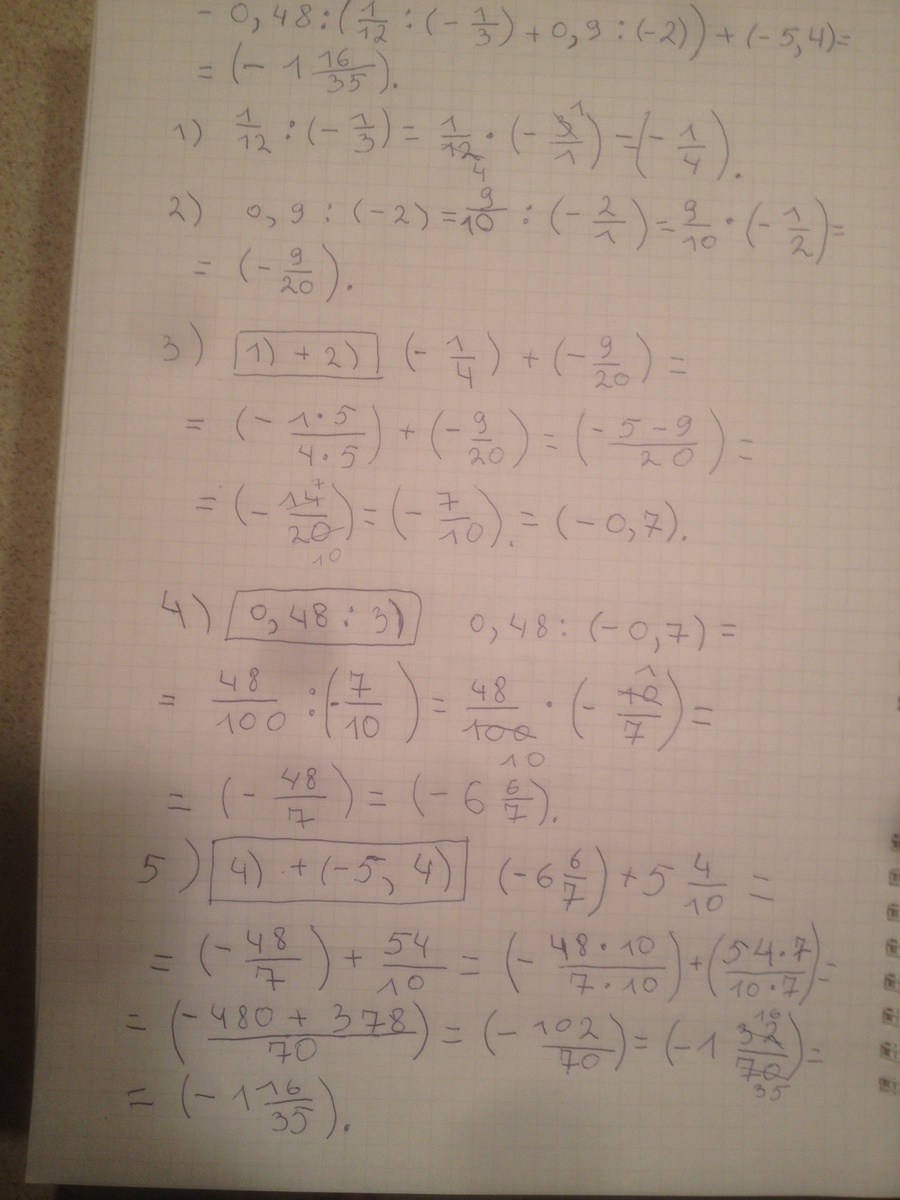 - 0,48:(1/12 : (- 1/3) + 0,9 : (-2)) + (-5,4)=
= (- 1 16/35).
1) 1/12 : (- 1/3) = 1/12 4 · (- 3/1 1) = (- 1/4).
2) 0,9 : (-2) = 9/10 : (- 2/1) = 9/10 · (- 1/2) =
= (- 9/20).
3) 1) + 2) (- 1/4) + (- 9/20) =
= (- 1·5/4·5) + (- 9/20) = (- 5-9/20) =
= (- 14/20 7/10) = (- 7/10). = (-0,7).
4) 0,48 : 3) 0,48 : (-0,7) =
= 48/100 : (- 7/10) = 48/100 10 · (- 10/7 1) =
= (- 48/7) = (- 6 6/7).
5) 4) + (-5,4) (-6 6/7) + 5 4/10 =
= (- 48/7) + 54/10 = (- 48·10/7·10) + (54·7/10·7) =
= (-480 + 378/70) = (- 102/70) = (-1 32/70 16/35) =
= (- 1 16/35).